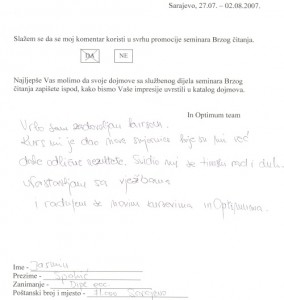 Sarajevo, 27.07. – 02.08.2007.
Slažem se da se moj komentar koristi u svrhu promocije seminara Brzog čitanja.
DA NE
Najljepše Vas molimo da svoje dojmove sa službenog dijela seminara Brzog
čitanja zapišete ispod, kako bismo Vaše impresije uvrstili u katalog dojmova.
In Optimum team
Vrlo sam zadovoljan kursom.
Kurs mi je dao nove smjernice koje su mi već
dale odlične rezultate. Sviđa mi se timski rad i duh.
sa vježbama
i radujem se novim kursevima inOptimuma.
Ime - Jasmin
Prezime -
Zanimanje - Dipl. ecc.
Poštanski broj i mjesto - Sarajevo